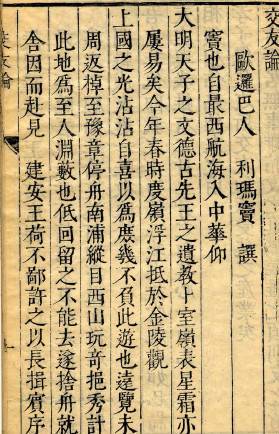 交友論
歐邏巴人 利瑪竇 譔
竇也自最西航海入中華仰
大明天子之文德古先王之遺教卜室嶺表星霜亦
屢易矣今年春時度嶺浮江抵於金陵觀
上國之光沾沾自喜以為庶幾不負此遊也遠覽未
周返棹至豫章停舟南浦縱目西山玩奇挹秀計
此地為至人淵藪也低回留之不能去遂捨舟就
舍因而赴見 建安王荷不鄙許之以長揖賓序
交友論
一